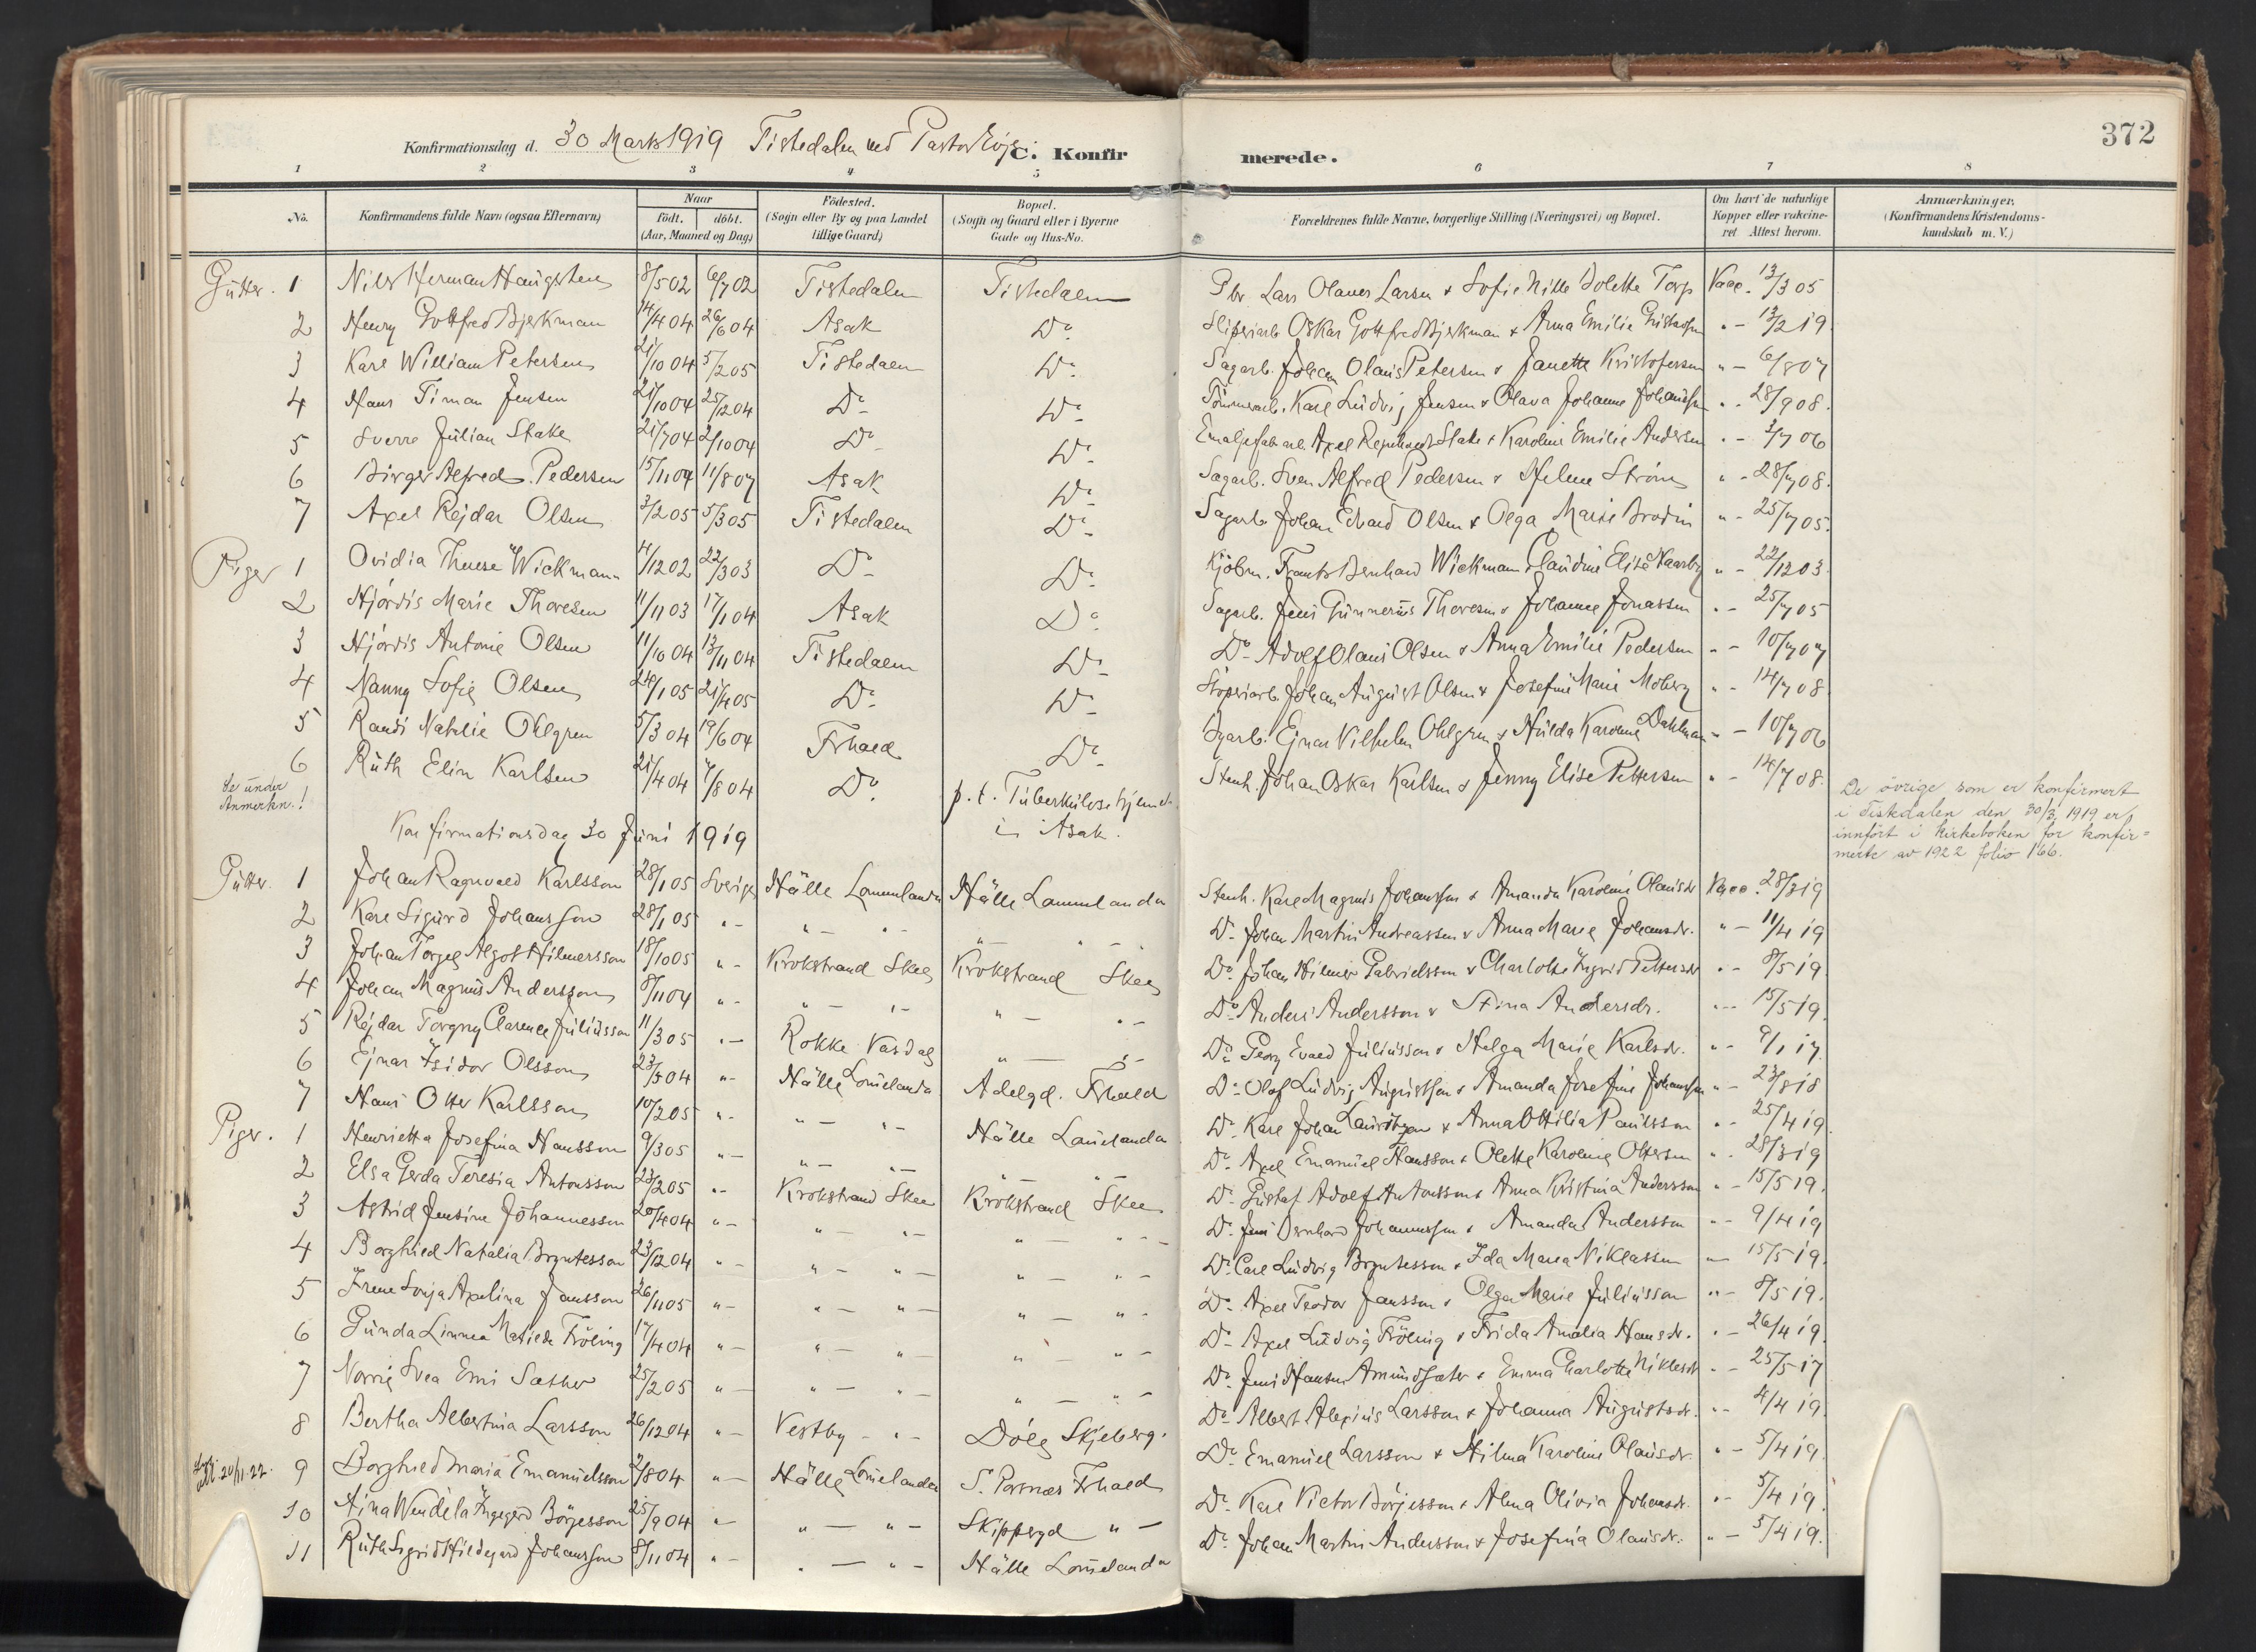 372
Konfirmationsdag d. 30 Marts 1919 Tistedalen ved Pastor C. Konfirmerede.
1 2 3 4 5 6 7 8
No. Konfirmandens fulde Navn (ogsaa Efternavn) Naar født. døbt. (Aar, Maaned og Dag) Fødested. (Sogn eller By og paa Landet tillige Gaard) Bopæl. (Sogn og Gaard eller i Byerne Gade og Hus-No. Forældrenes fulde Navne, borgerlige Stilling (Næringsvei) og Bopæl. Om havt de naturlige Kopper eller vakcineret Attest herom. Anmærkninger. (Konfirmandens Kristendomskundskab m. V.)
Gutter. 1 Nils Herman Haugsten 8/5 02 6/7 02 Tistedalen Tistedalen Lars Olaus Larsen & Sofie Mille Bolette Torp Vacc. 13/3 05
2 Henry Gottfred Bjerkman 14/4 04 26/6 04 Asak Do Sliperiarb. Oskar Gottfred Bjerkman & Anna Emilie Gustafsen " - 13/2 19.
3 Karl William Petersen 21/10 04 5/2 05 Tistedalen Do Sagarb. Johan Olaus Petersen & Janette Kristofersen " - 6/8 07
4 Hans Timan Jensen 21/10 04 25/12 04 Do Do Tømmerarb. Karl Ludvig Jensen & Olava Johanne Johansen " - 28/9 08.
5 Sverre Julian Stake 21/7 04 2/10 04 Do Do Emaljefab arb. Axel Reinhardt Stake & Karoline Emilie Andersen " - 3/7 06
6 Birger Alfred Pedersen 15/11 04 11/8 07 Asak Do Sagarb. Sven Alfred Pedersen & Helene Strøm " - 28/7 08.
7 Axel Rejdar Olsen 3/2 05 5/3 05 Tistedalen Do Sagarb. Johan Edvard Olsen & Olga Marie Brodin " - 25/7 05.
Piger 1 Ovidia Therese Wickmann 4/12 02 22/3 03 Do Do Kjøbm. Frantz Bernhard Wickmann Claudine Elise Naarby " - 22/12 03.
2 Hjørdis Marie Thoresen 11/11 03 17/1 04 Asak Do Sagarb. Jens Gunnerius Thoresen & Johanne Jonassen " - 25/7 05
3 Hjørdis Antonie Olsen 11/10 04 13/11 04 Tistedalen Do Do Adolf Olaus Olsen & Anna Emilie Pedersen " - 10/7 07
4 Nanny Sofie Olsen 24/1 05 21/4 05 Do Do Støperiarb. Johan August Olsen & Josefine Marie Moberg " - 14/7 08
5 Randi Natalie Ohlgren 5/3 04 19/6 04 Frhald Do Ejnar Vilhelm Ohlgren & Hulda Karoline Dahlman " - 10/7 06
6 Ruth Elin Karlsen 21/4 04 7/8 04 Do p.t. Tuberkulosehjemmet i Asak. Stenh. Johan Oskar Karlsen & Jenny Elise Pettersen " - 14/7 08.
Se under Anmerkn.!
De övrige som er konfirmert
i Tistedalen den 30/3 1919 er
innfört i kirkeboken for konfir=
merte av 1922 folio 166.
Konfirmationsdag 30 Juni 1919
Gutter. 1 Johan Ragnvald Karlsson 28/1 05 Sverige Hälle Lommelanda Hälle Lommelanda Stenh. Karl Magnus Johansson & Amanda Karoline Olausdr. Vacc. 28/3 19
2 Karl Sigurd Johansson 28/1 05 " - " - " - " - Do Johan Martin Andreassen & Anna Maria Johansdr. " - 11/4 19
3 Johan Torgny Algot Hilmersson 18/10 05 " - Krokstrand Skee Krokstrand Skee Do Johan Hilmer Gabrielsson & Charlotte Ingrid Pettersdr " - 8/5 19
4 Johan Magnus Andersson 8/11 04 " - " - " - " - Do Anders Andersson & Stina Andersdr. " - 15/5 19.
5 Rejdar Torgny Clarence Juliusson 11/3 05 " - Rokke Vasdal " - " - Do Georg Evald Juliusson & Helga Maria Karlsdr. " - 9/1 17
6 Ejnar Isidor Olsson 23/5 04 " - Hälle Lomelanda Adelgd. Frhald Do Olof Ludvig Augustsson & Amanda Josefine Johansson " - 23/8 18
7 Hans Otto Karlsson 10/2 05 " - " - " - Hälle Lomelanda Do Karl Johan Lauritzen & Anna Ottilia Paulsson " - 25/4 19.
Piger. 1 Henrietta Josefina Hansson 9/3 05 " - " - " - " - Do Axel Emanuel Hansson & Olette Karoline Ottersen " - 28/3 19
2 Elsa Gerda Teresia Antonsson 23/2 05 " - Krokstrand Skee Krokstrand Skee Do Gustaf Adolf Antonsson & Anna Kristina Andersson " - 15/5 19.
3 Astrid Jensine Johannesson 20/4 04 " - " - " - " - Do Jens Bernhard Johannesson & Amanda Andersson " - 9/4 19
4 Borghild Natalia Bryntesson 23/12 04 " - " - " - " - Do Carl Ludvig Bryntesson & Ida Maria Niklassen " - 15/5 19.
5 Irene Sonja Axelina Jansson 26/11 05 " - " - " - " - Do Axel Teodor Jansson & Olga Marie Juliusson " - 8/5 19.
6 Gunda Linnea Matilda Fröling 17/4 04 " - " - " - " - Do Axel Ludvig Fröling & Frida Amalia Hansdr. " - 26/4 19.
7 Norrig Svea Emi Sæther 25/2 05 " - " - " - " - Do Jens Hansen Amundsæter & Emma Charlotte Niklasdr " - 25/5 17
8 Bertha Albertina Larsson 26/12 04 " - Vestby - " - Döle Skjeberg. Do Albert Alexius Larsson & Johanna Augustsdr. " - 4/4 19.
20/11.22. 9 Borghild Maria Emanuelsson 2/8 04 " - Hälle Lomelanda S. Frhald Do Emanuel Larsson & Hilma Karoline Olausdr. " - 5/4 19.
10 Aina Wendela Ingegerd Börjesson 25/9 04 " - " - " - Skippergd " - Do Karl Victor Börjesson & Alma Olivia Johansdr. " - 5/4 19.
11 Ruth Sigrid Hildegard Johansson 8/11 04 " - " - " - Hälle Lomelanda Do Johan Martin Andersson & Josefina Olausdr. " - 5/4 19.